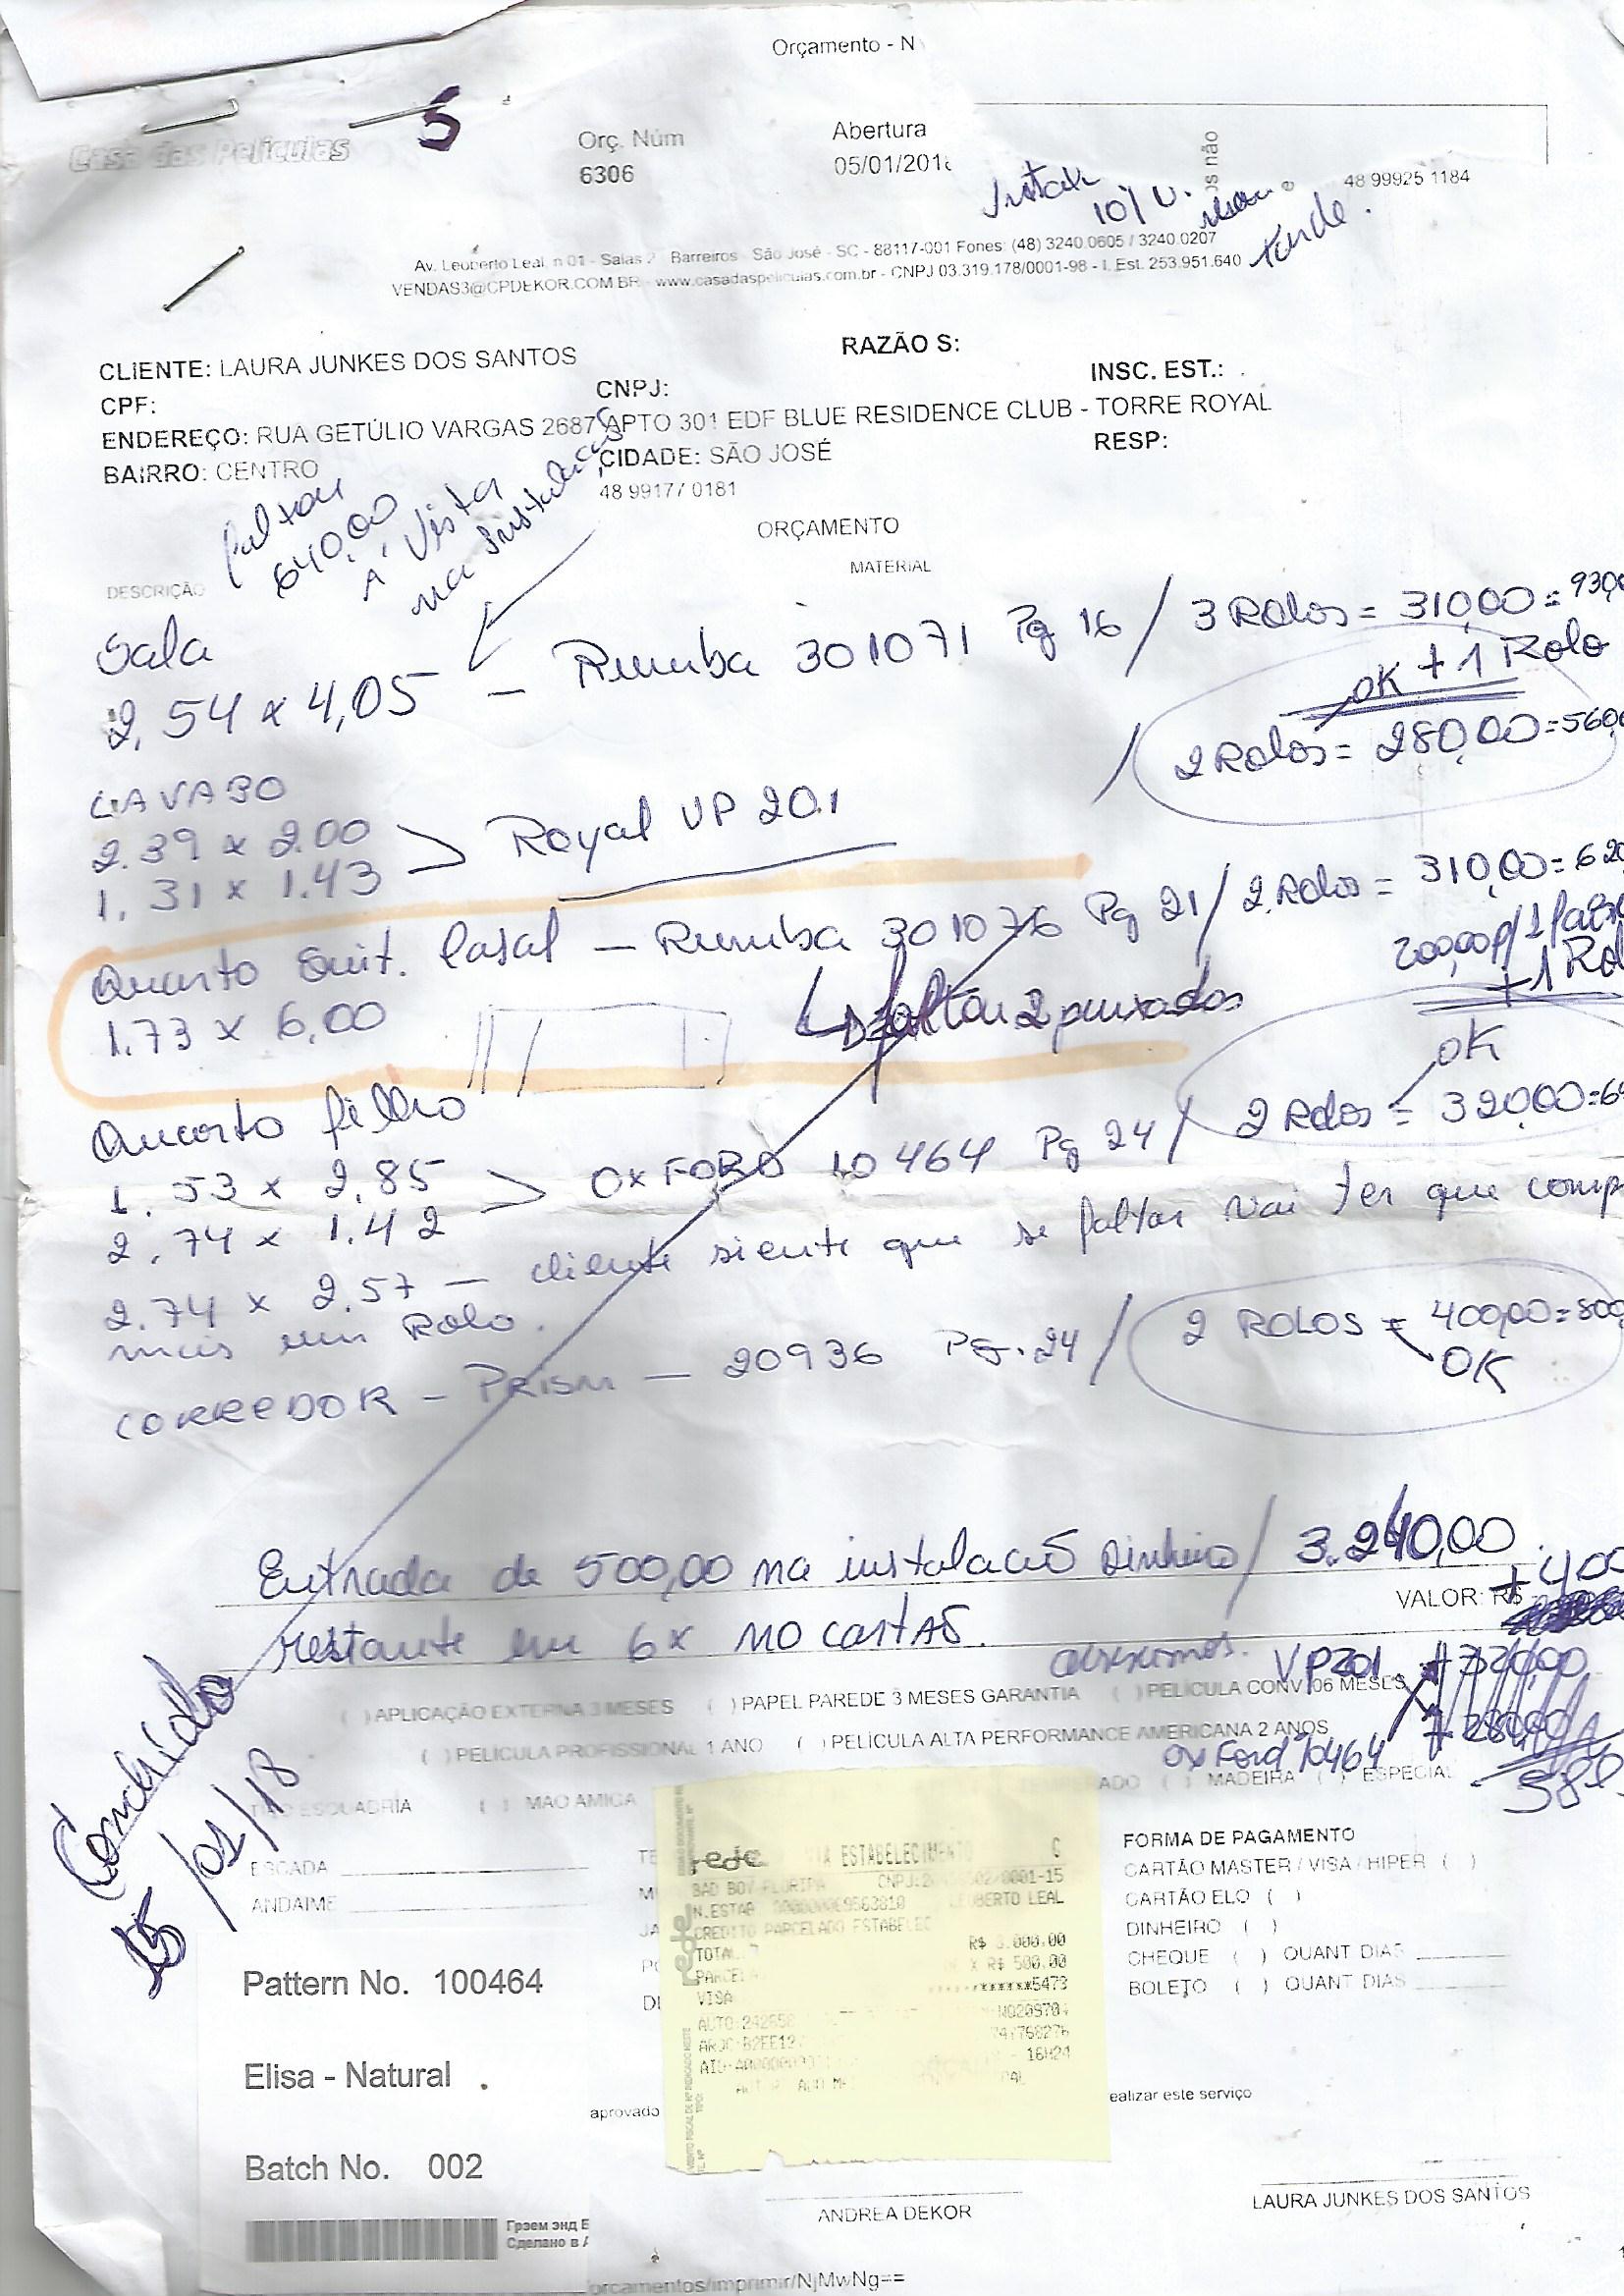 Orçamento - N
Casa das Películas
5
Orç. Núm
6306
Abertura
05/01/201
os não
48 99925 1184
10/
tarde.
Av. Leoberto Leal, n 01 - Salas 2 Barreiros - São José - SC - 88117-001 Fones: (48) 3240.0605 / 3240.0207
VENDAS3@CPDEKOR.COM.BR - www.casadaspeliculas.com.br - CNPJ 03.319.178/0001-98 - I. Est. 253.951.640
CLIENTE: LAURA JUNKES DOS SANTOS
RAZÃO S:
CPF:
CNPJ:
INSC. EST.:
ENDEREÇO: RUA GETÚLIO VARGAS 2687 APTO 301 EDF BLUE RESIDENCE CLUB - TORRE ROYAL
BAIRRO: CENTRO
CIDADE: SÃO JOSÉ
RESP:
48 99177 0181
faltou
640,00
A vista
na instalação
ORÇAMENTO
DESCRIÇÃO
MATERIAL
Sala
2,54 x 4,05 - Rumba 301071 Pg 16 / 3 Rolos = 310,00 = 930,0
OK + 1 Rolo
/ 2 Rolos = 280,00 = 560,0
LAVABO
2.39 x 2.00
1.31 x 1.43 > Royal VP 201
Quarto Suit. Casal - Rumba 301076 Pg 21 / 2 Rolos = 310,00 = 620
200,00 p/ 1
+ 1 Rol
1.73 x 6,00
faltou 2 puxados
OK
Quarto filho
1.53 x 2.85
2.74 x 1.42 > OXFORD 10464 Pg 24 / 2 Rolos = 320,00 = 64
2.74 x 2.57 - cliente siente que se faltar vai ter que comp
mais um Rolo.
CORREDOR - PRISM - 20936 Pg. 24 / 2 ROLOS = 400,00 = 800,
OK
Entrada de 500,00 na instalação dinheiro / 3.240,00
VALOR: R$ + 400
restante em 6x no cartão.
VP201
( ) APLICAÇÃO EXTERNA 3 MESES ( ) PAPEL PAREDE 3 MESES GARANTIA ( ) PELÍCULA CONV. 06 MESES
( ) PELÍCULA PROFISSIONAL 1 ANO ( ) PELÍCULA ALTA PERFORMANCE AMERICANA 2 ANOS
OxFord 10464
ESQUADRIA ( ) MAO AMIGA
( ) MADEIRA ( ) ESPECIAL
Concluído
15/01/18
ESCADA
ANDAIME
FORMA DE PAGAMENTO
CARTÃO MASTER / VISA / HIPER ( )
CARTÃO ELO ( )
DINHEIRO ( )
CHEQUE ( ) QUANT DIAS
BOLETO ( ) QUANT DIAS
rede
ESTABELECIMENTO
BAD BOY FLORIPA
LEOBERTO LEAL
CREDITO PARCELADO ESTABELEC
TOTAL R$ 3.000,00
PARCELA X R$ 500,00
VISA *******5473
16H24
Pattern No. 100464
Elisa - Natural
Batch No. 002
Грэем энд Б
Сделано в А
aprovado
ealizar este serviço
ANDREA DEKOR
LAURA JUNKES DOS SANTOS
orcamentos/imprimir/NjMwNg==